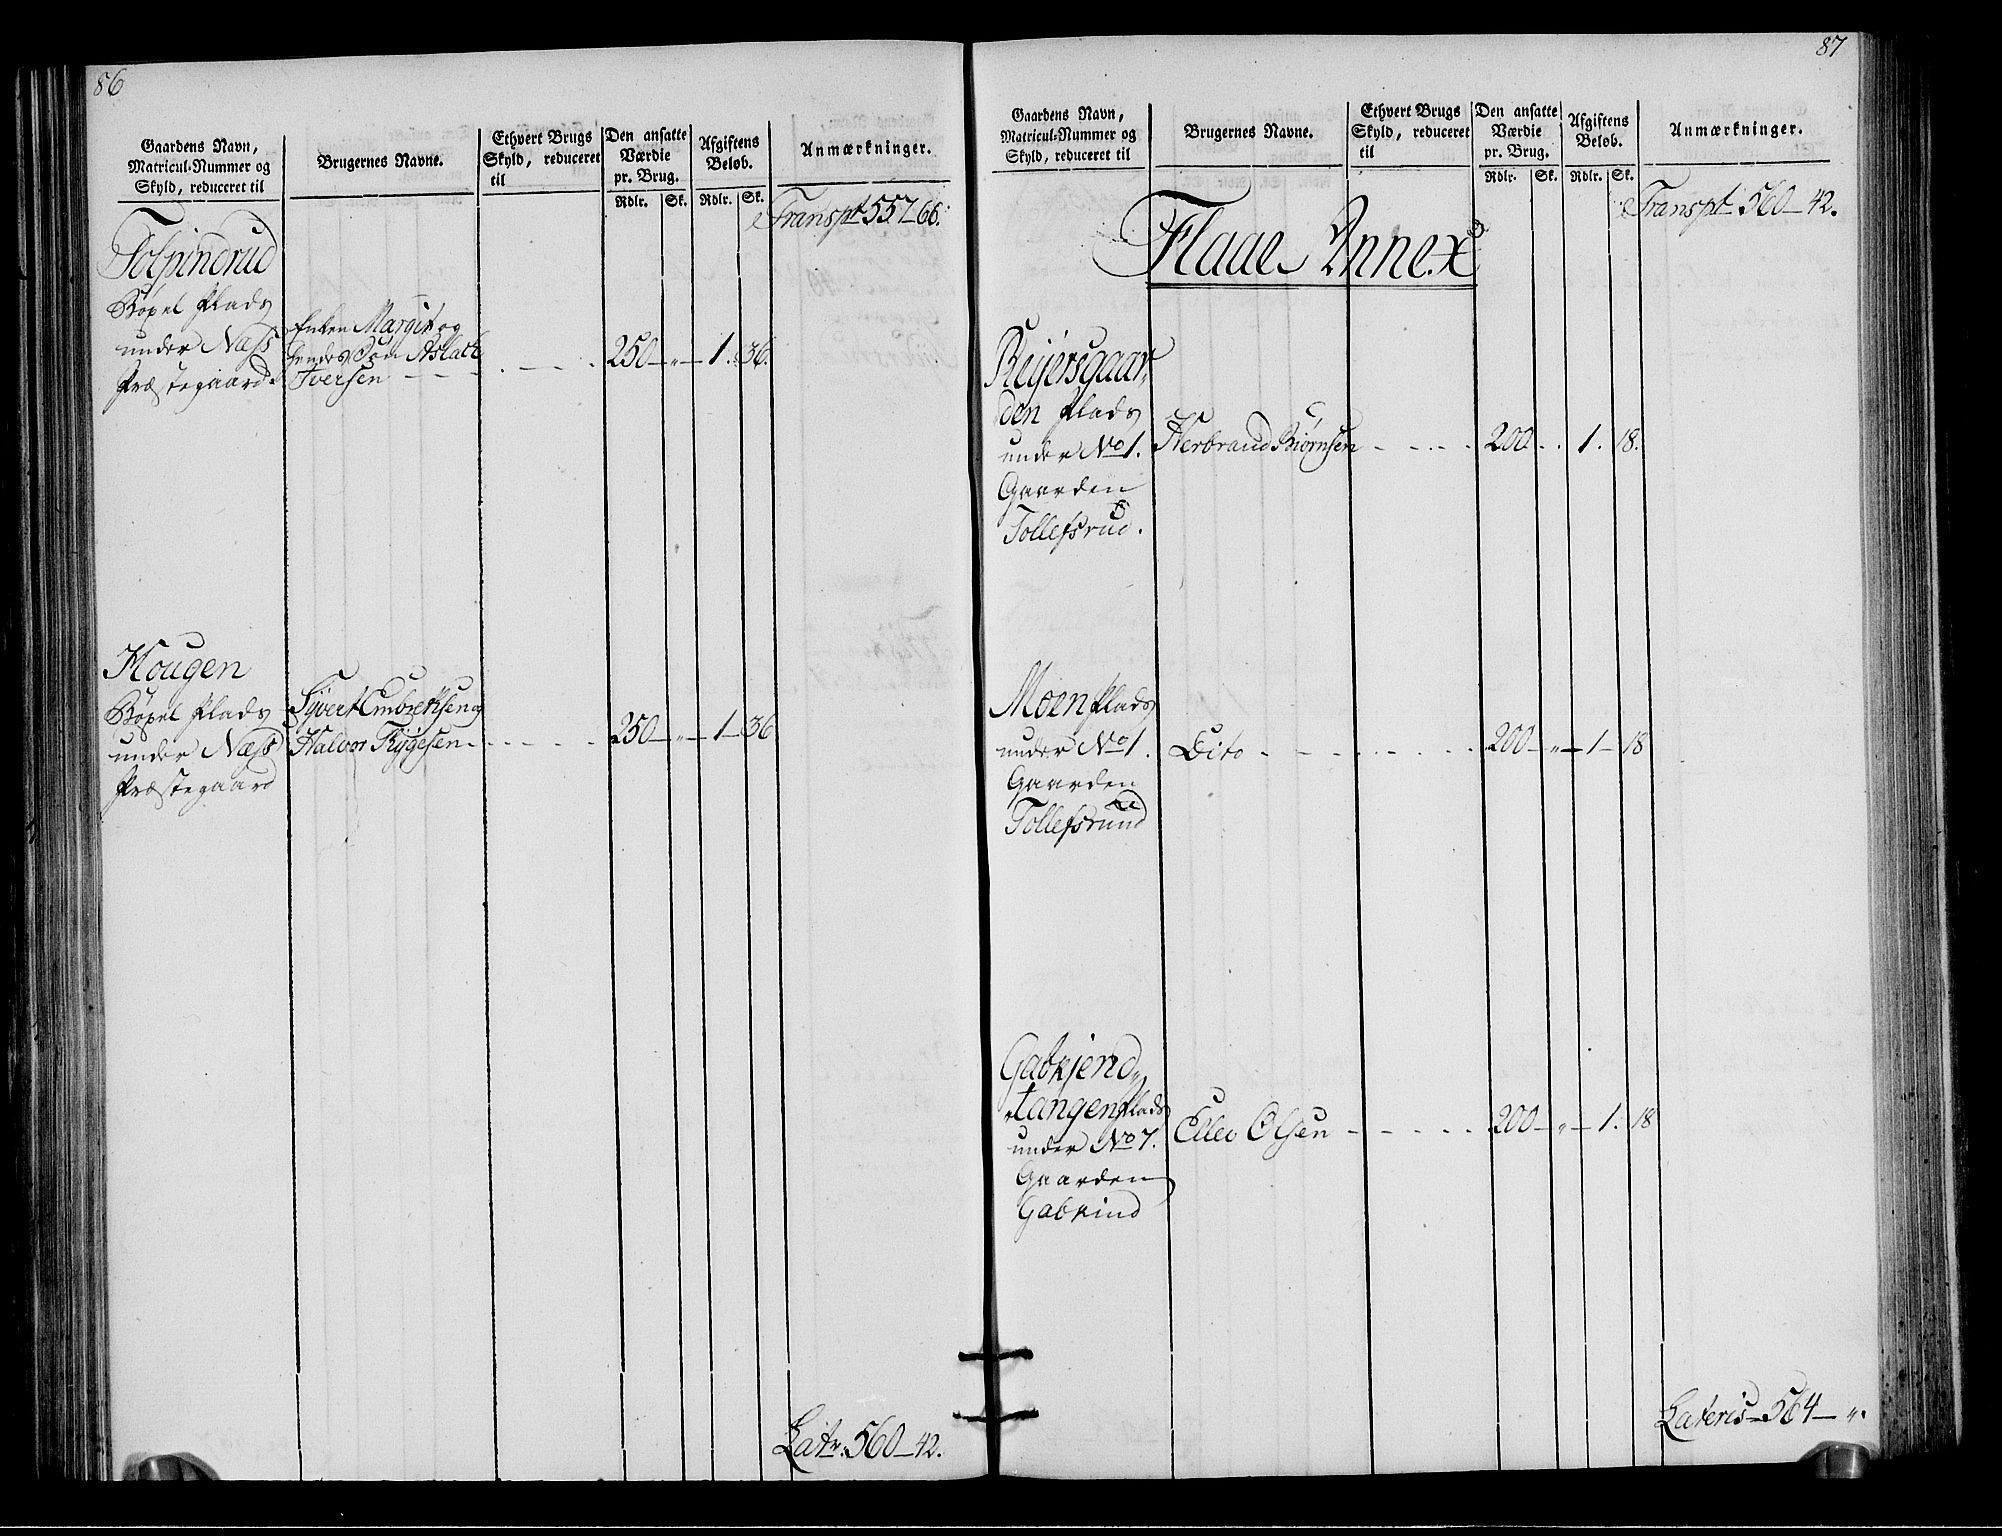 86
Gaardens Navn,
Matricul-Nummer og
Skyld, reduceret til
Brugernes Navne.
Ethvert Brugs
Skyld, reduceret
til
Den ansatte
Værdie
pr. Brug.
Rdlr. Sk.
Afgiftens
Beløb.
Rdlr. Sk.
Anmærkninger.
Transpt 557 66.
Tolpindrud
Bøxel Plads
under Næss
Præstegaard
Enken Margit og
hendes Søn Aslack
Iversen - - - - - - 250 - „ - 1. 36.
Hougen
Bøxel Plads
under Næss
Præstegaard
Syvert Embriksen og
Halvor Rygesen - - - - - 250 - „ - 1 - 36
Latr. 560 - 42.
87
Gaardens Navn,
Matricul-Nummer og
Skyld, reduceret til
Brugernes Navne.
Ethvert Brugs
Skyld, reduceret
til
Den ansatte
Værdie
pr. Brug.
Rdlr. Sk.
Afgiftens
Beløb.
Rdlr. Sk.
Anmærkninger.
Transpt 560 - 42.
Flaae Annex
Reyersgaar-
den Plads
under No 1.
Gaarden
Tollefsrud.
Herbrand Biørnsen - - - - 200 - . 1. 18.
Moen Plads
under No 1.
Gaarden
Tollefsruud
Dito - - - - - - 200 - „ - 1 - 18
Gabkjend-
tangen Plads
under No 7.
Gaarden
Gabkind
Ellev Olsen - - - - - 200 - „ - 1. 18
Lateris - 564 - „.